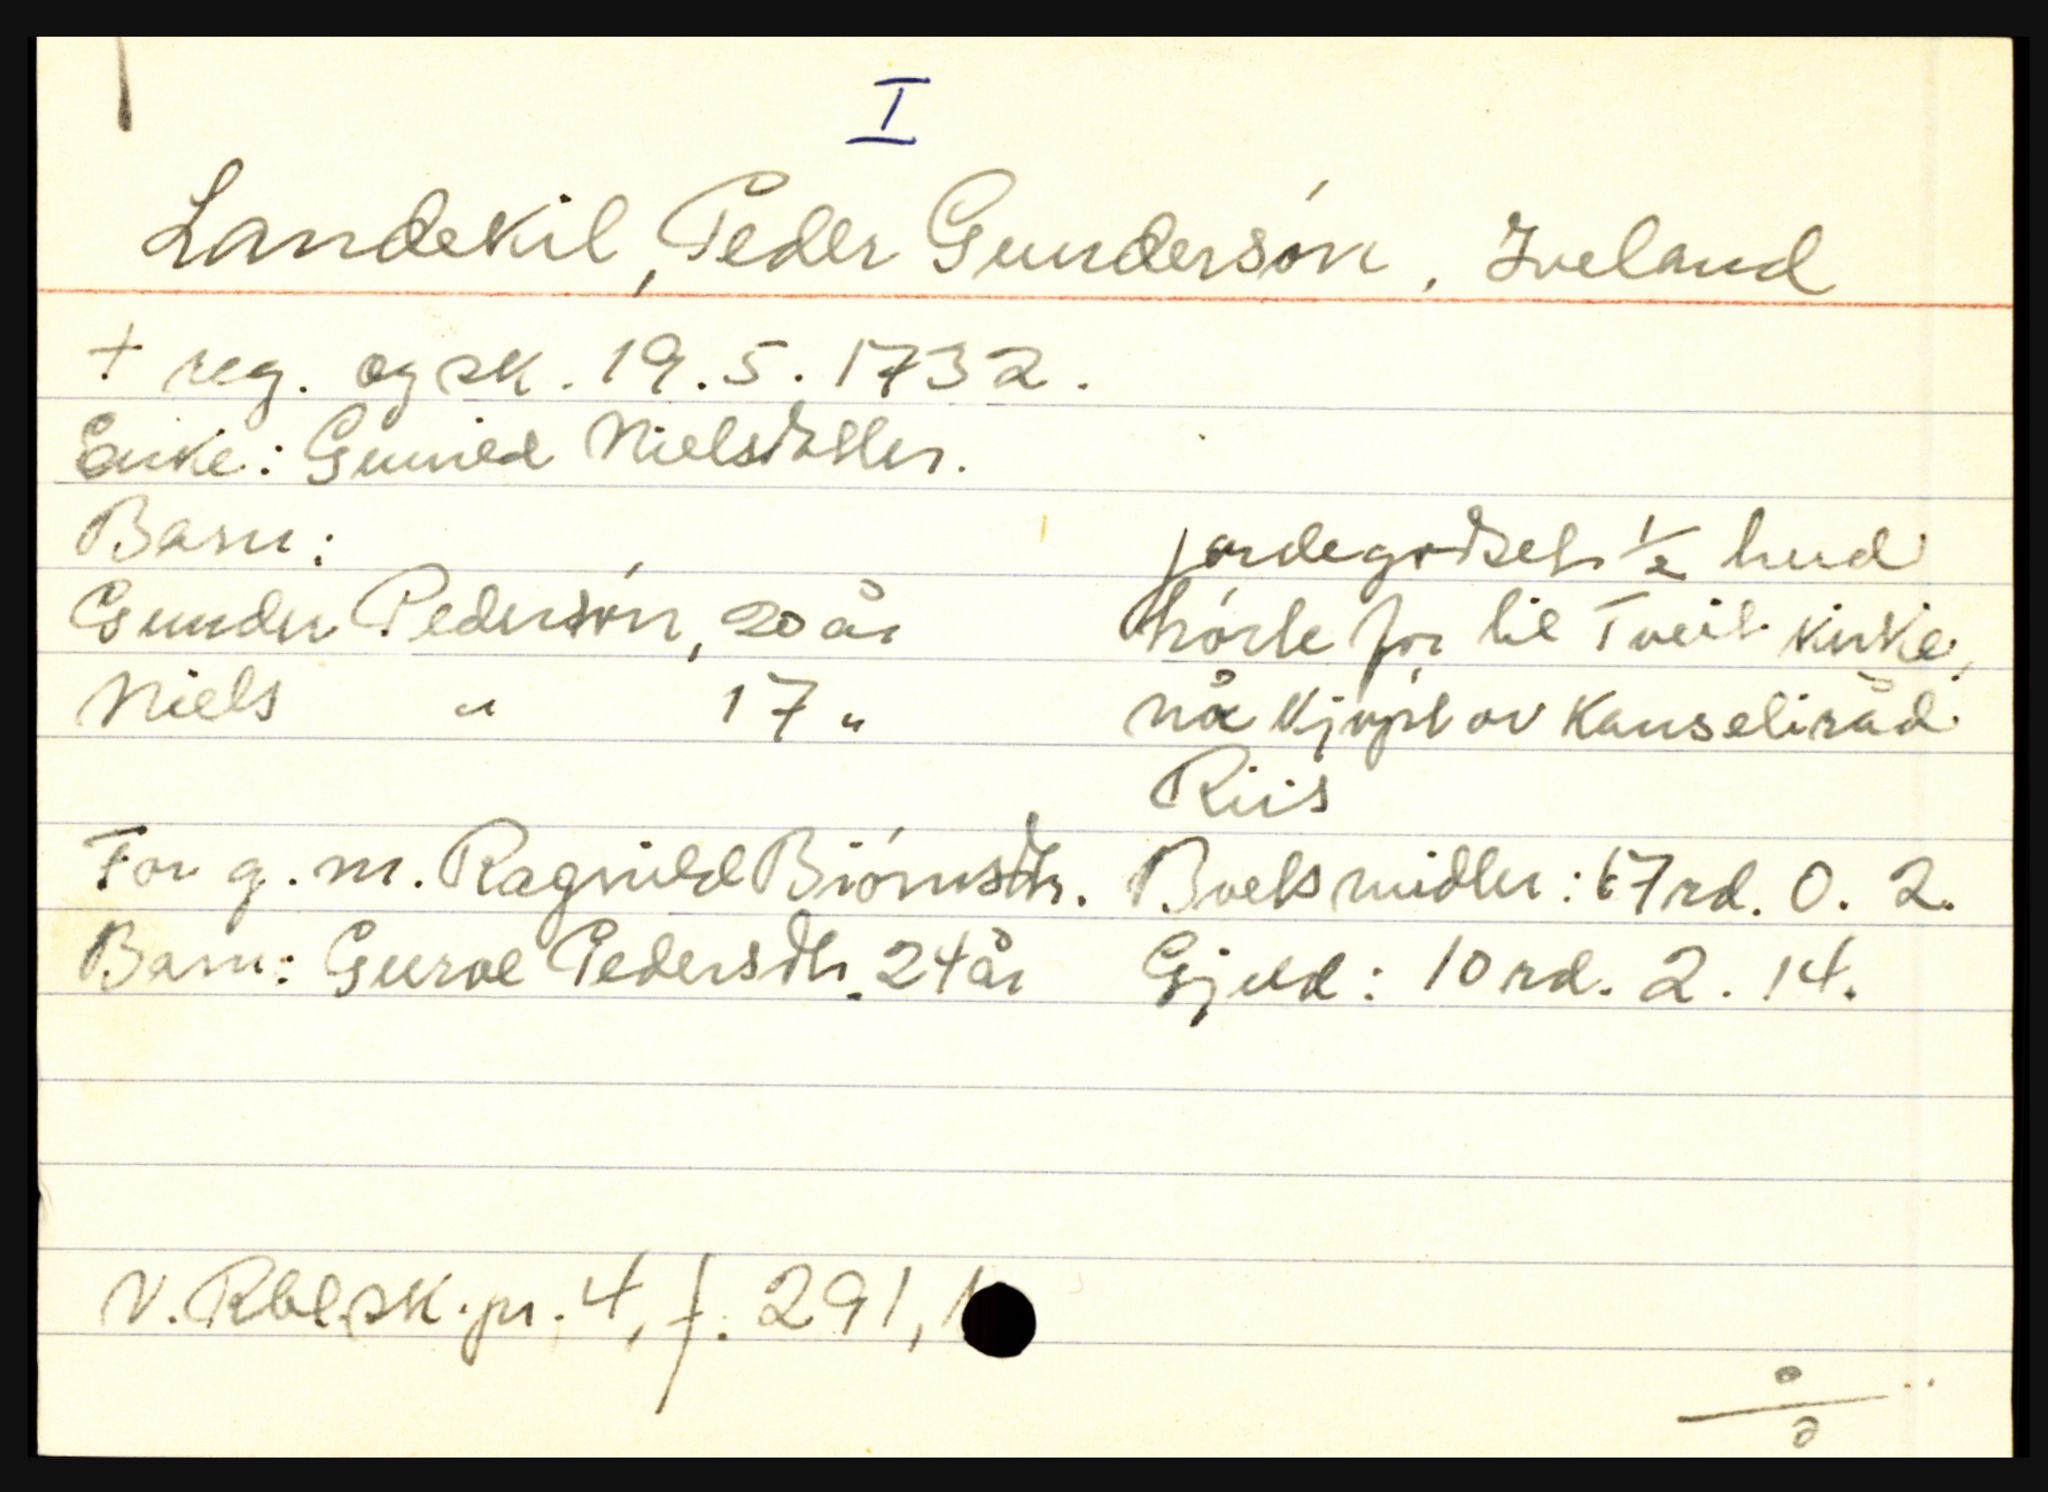 I
Landekil, Peder Gundersón, Iveland
+ reg. og sk. 19.5.1732.
Enke: Gunild Nielsdotter.
Barn:
Gunder Pedersón, 20 år
Niels " 17 "
jordegodset 1/2 hud
hórte for til Tveit kirke,
nå kjøpt av Kanseliråd
Riis
For g. m. Ragnild Biórnsdtr.
Barn: Guroe Pedersdtr. 24 år
Boets midler: 67 rd. 0. 2.
Gjeld: 10 rd. 2. 14.
V. Rbl. sk. pr. 4, f. 291,